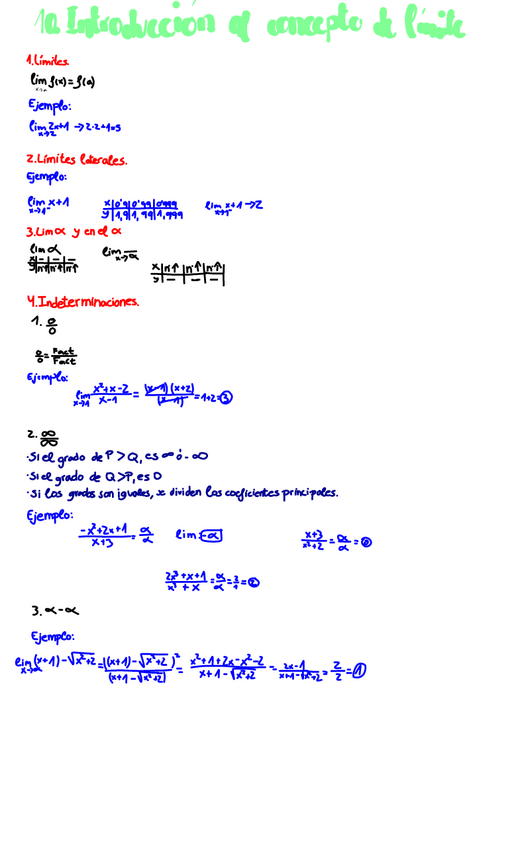 1a Introducción al concepto de límite
1. Límites.
lim f(x) = f(a)
Ejemplo:
lim 2x+1 → 2·2+1=5
x→2
2. Límites laterales.
Ejemplo:
lim x+1
x→1⁻
x | 0'9 | 0'99 | 0'999
y | 1,9 | 1,99 | 1,999
lim x+1 → 2
x→1⁻
3. Lim α y en el α
lim α
x | – | – | –
y | nº↑ | nº↑ | nº↑
lim –
x→α
x | nº↑ | nº↑ | nº↑
y | – | – | –
4. Indeterminaciones.
1. 0/0
0/0 = Fact/Fact
Ejemplo:
lim x→1 (x²+x-2)/(x-1) = ((x-1)(x+2))/(x-1) = 1+2 = 3
2. ∞/∞
·Si el grado de P > Q, es ∞ ó -∞
·Si el grado de Q>P, es 0
·Si los grados son iguales, se dividen los coeficientes principales.
Ejemplo:
(-x²+2x+1)/(x+3) = α/α lim: -α
(x+3)/(x²+2) = α/α = 0
(2x³+x+1)/(x³+x) = α/α = 2/1 = 2
3. α-α
Ejemplo:
lim x→α (x+1)-√(x²+2) = ((x+1)-√(x²+2))²/(x+1-√(x²+2)) = (x²+1+2x-x²-2)/(x+1-√(x²+2)) = (2x-1)/(x+1-√(x²+2)) = 2/2 = 1